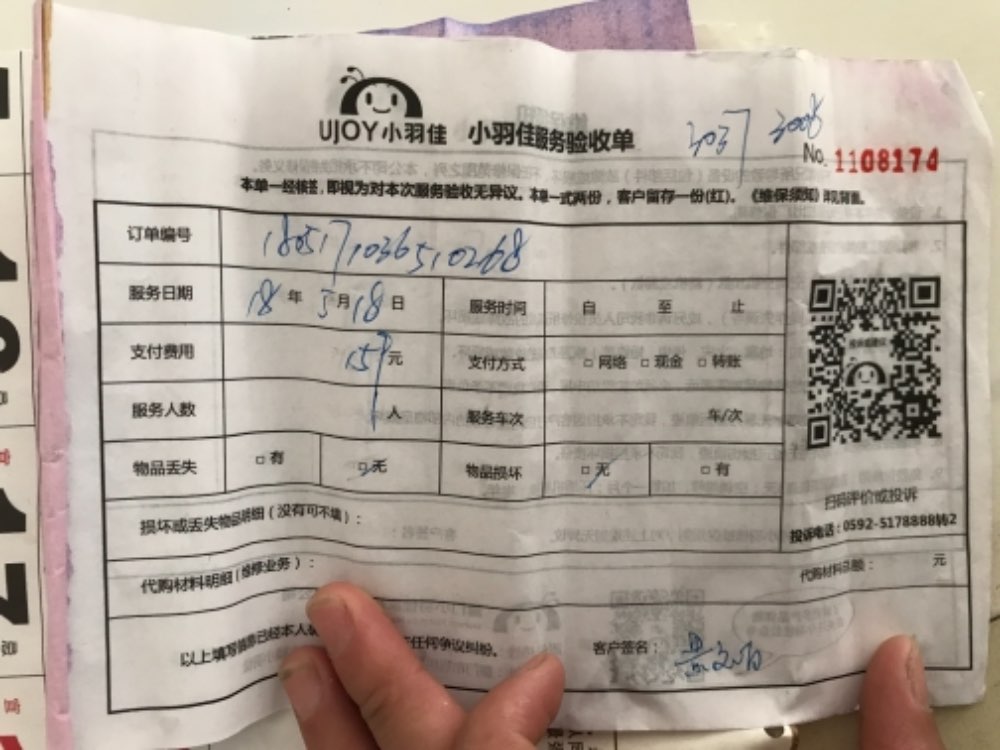 UJOY小羽佳 小羽佳服务验收单
3037 3008
No. 1108174
本单一经核签,即视为对本次服务验收无异议。本单一式两份,客户留存一份(红)。《维保须知》详见背面。
订单编号 1805171036510268
服务日期 18 年 5 月 18 日 服务时间 自 至 止
支付费用 159元 支付方式 □网络 □现金 □转账
服务人数 1人 服务车次 车/次
物品丢失 □有 □无 物品损坏 □无 □有
扫码评价或投诉
投诉电话:0592-5178888转2
损坏或丢失物品明细(没有可不填):
代购材料明细(维修业务): 代购材料总额: 元
以上填写信息已经本人 任何争议纠纷。 客户签名: